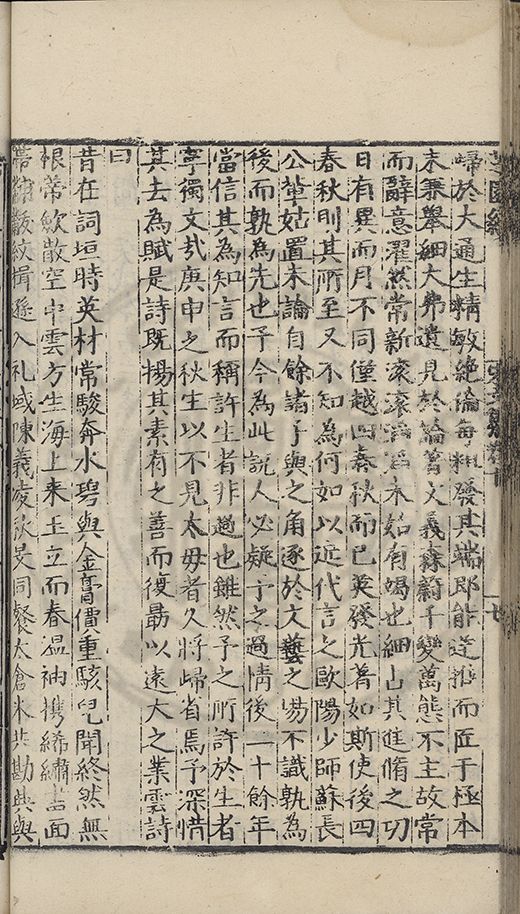 歸於大通生精敏絕倫每粗發其端即能逆推而底于極本
末兼舉細大弗遺見於論著文義森蔚千變萬態不主故常
而辭意濯然常新滾滾滔滔未始有竭也細占其進脩之功
日有異而月不同僅越四春秋而已英發光著如斯使後四
春秋則其所至又不知為何如以近代言之歐陽少師蘇長
公輩姑置未論自餘諸子與之角逐於文藝之場不識孰為
後而孰為先也予今為此說人必疑予之過情後二十餘年
當信其為知言而稱許生者非過也雖然予之所許於生者
寧獨文㦲庚申之秋生以不見太母者久將歸省焉予深惜
其去為賦是詩既揚其素有之善而復勗以遠大之業云詩
曰
昔在詞垣時英材常駿奔水碧與金膏價重駭見聞終然無
根蒂欻散空中雲方生海上来玉立而春溫袖携絺繡書面
帶黼黻紋揖遜入礼域陳義凌秋旻同餐太倉米共勘典與